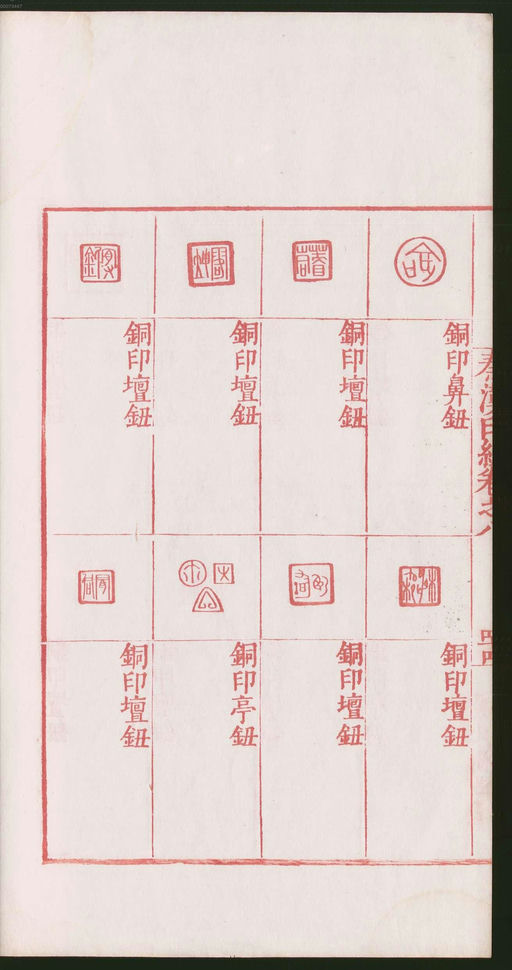 秦漢印統卷之八
四四
銅印鼻鈕
銅印壇鈕
銅印壇鈕
銅印壇鈕
銅印壇鈕
銅印壇鈕
銅印亭鈕
銅印壇鈕